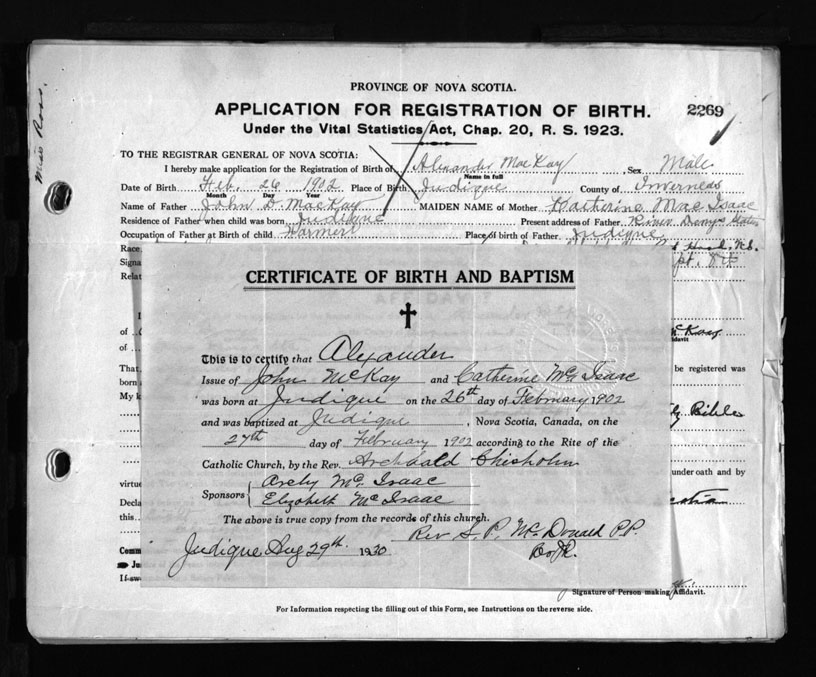 Miss Ross.
PROVINCE OF NOVA SCOTIA.
APPLICATION FOR REGISTRATION OF BIRTH. 2269
Under the Vital Statistics Act, Chap. 20, R. S. 1923.
TO THE REGISTRAR GENERAL OF NOVA SCOTIA:
I hereby make application for the Registration of Birth of Alexander MacKay Sex Male
Name in full
Date of Birth Feb. 26 1902 Place of Birth Judique County of Inverness
Month Day Year
Name of Father John D. MacKay MAIDEN NAME of Mother Katherine MacIsaac
Residence of Father when child was born Judique Present address of Father River Denys
Occupation of Father at Birth of child Farmer Place of birth of Father Judique
Race N.S.
Signa
Relat
CERTIFICATE OF BIRTH AND BAPTISM
This is to certify that Alexander
Issue of John McKay and Catherine Mc Isaac
was born at Judique on the 26th day of February 1902
and was baptized at Judique, Nova Scotia, Canada, on the
27th day of February 1902 according to the Rite of the
Catholic Church, by the Rev. Archbald Chisholm
Sponsors Archy Mc. Isaac
Elizabeth Mc Isaac
The above is true copy from the records of this church.
Rev S. P. Mc Donald P.P.
Judique Aug 29th 1930
of
of
That be registered was
born
My k Bible
virtue under oath and by
Decla
this
Comm
Ju
If sw
Signature of Person making Affidavit.
For Information respecting the filling out of this Form, see Instructions on the reverse side.